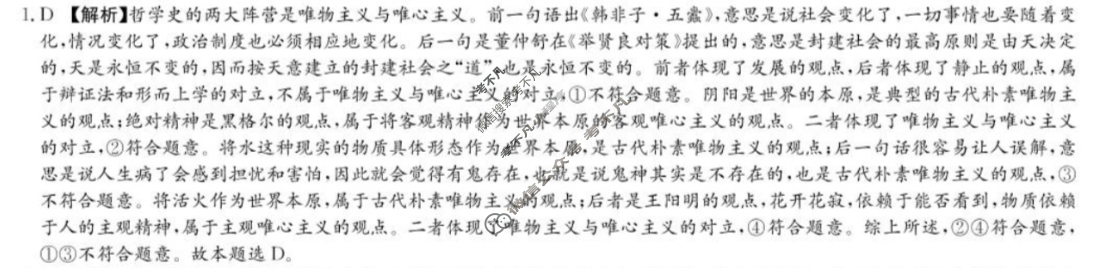 1. D 【解析】哲学史的两大阵营是唯物主义与唯心主义。前一句语出《韩非子·五蠹》,意思是说社会变化了,一切事情也要随着变
化,情况变化了,政治制度也必须相应地变化。后一句是董仲舒在《举贤良对策》提出的,意思是封建社会的最高原则是由天决定
的,天是永恒不变的,因而按天意建立的封建社会之“道”也是永恒不变的。前者体现了发展的观点,后者体现了静止的观点,属
于辩证法和形而上学的对立,不属于唯物主义与唯心主义的对立,①不符合题意。阴阳是世界的本原,是典型的古代朴素唯物主
义的观点;绝对精神是黑格尔的观点,属于将客观精神作为世界本原的客观唯心主义的观点。二者体现了唯物主义与唯心主义
的对立,②符合题意。将水这种现实的物质具体形态作为世界本原,是古代朴素唯物主义的观点;后一句话很容易让人误解,意
思是说人生病了会感到担忧和害怕,因此就会觉得有鬼存在,也就是说鬼神其实是不存在的,也是古代朴素唯物主义的观点,③
不符合题意。将活火作为世界本原,属于古代朴素唯物主义的观点;后者是王阳明的观点,花开花寂,依赖于能否看到,物质依赖
于人的主观精神,属于主观唯心主义的观点。二者体现了唯物主义与唯心主义的对立,④符合题意。综上所述,②④符合题意,
①③不符合题意。故本题选 D。